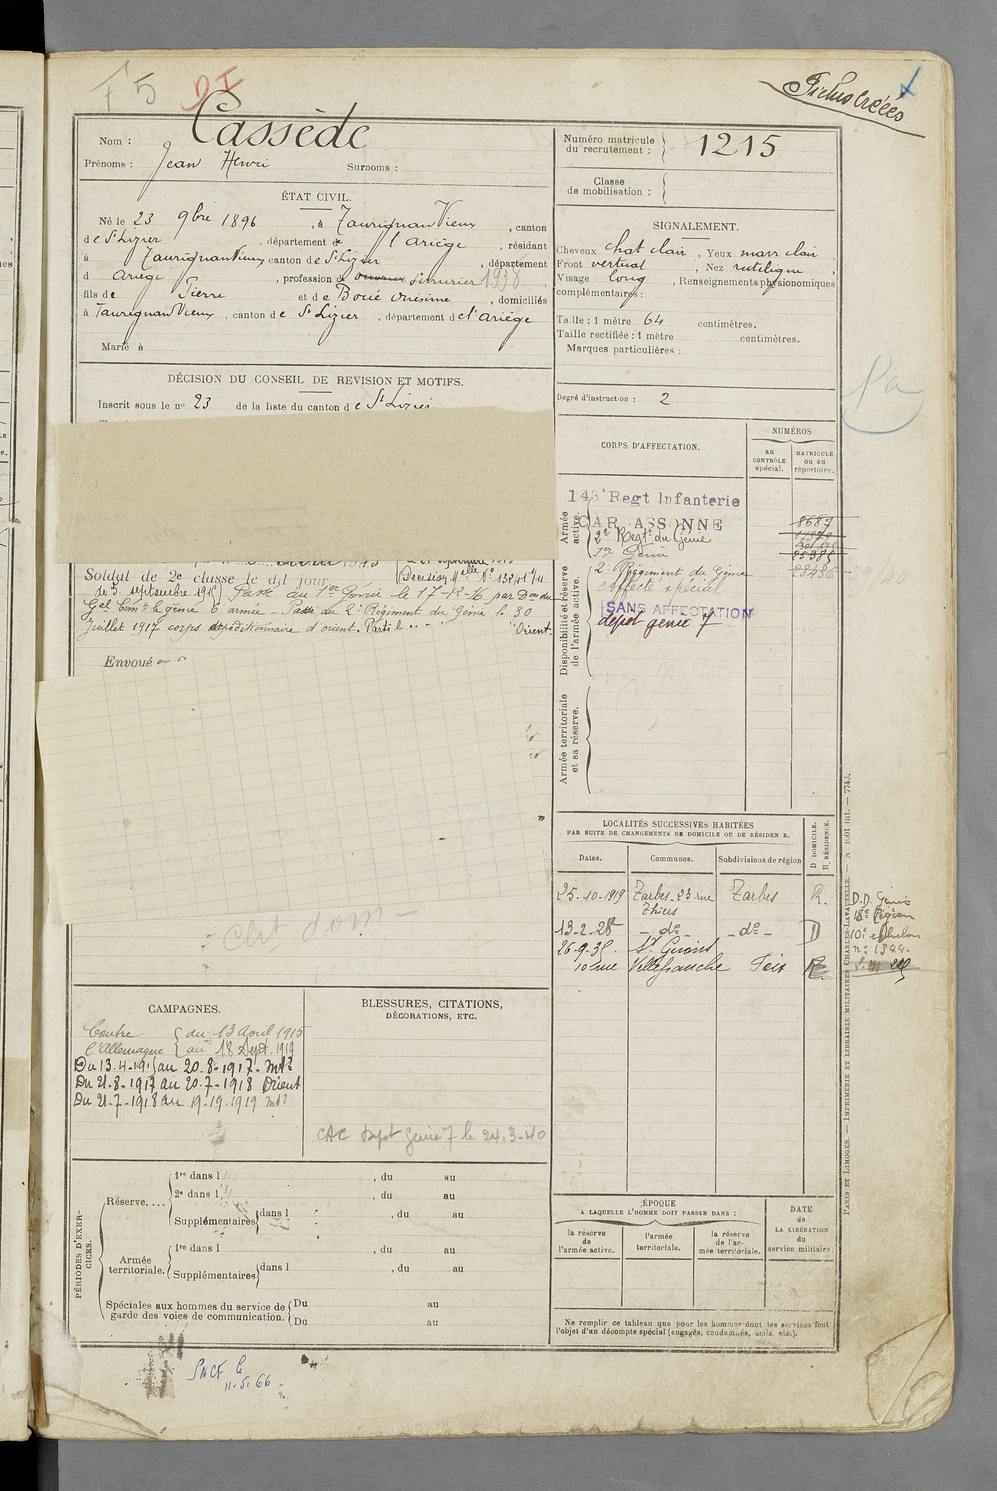 F 5 DI
Fiches Créées
Cassède
Nom :
Prénoms : Jean Henri Surnoms :
ÉTAT CIVIL.
Né le 23 9bre 1896, à Taurignan Vieux, canton
de St Lizier, département de l'Ariège, résidant
à Taurignan Vieux, canton de St Lizier, département
d Ariège, profession de ouvrier serrurier 1938
fils de Pierre et de Boué Onésime, domiciliés
à Taurignan Vieux, canton de St Lizier, département de l'Ariège
Marié à
DÉCISION DU CONSEIL DE REVISION ET MOTIFS.
Inscrit sous le no 23 de la liste du canton de St Lizier
Soldat de 2e classe le dit jour
(Decision Mlle No 13841 1/4
de 5 septembre 1915) Passé au 1er Génie le 17-12-16 par Don du
Gal Comt le génie 6 armée - Passé du 2e Régiment du Génie le 30
Juillet 1917 corps expéditionnaire d'orient. Parti
Orient.
Envoyé
Clat dom
CAMPAGNES.
Contre l'Allemagne { du 13 Avril 1915
au 18 Sept. 1919
Du 13.4-1915 au 20.8-1917-
Du 21-8-1917 au 20-7-1918 Orient
Du 21-7-1918 au 19-19-1919
BLESSURES, CITATIONS,
DÉCORATIONS, ETC.
CAC dépôt Génie 7 le 24.3-40
PÉRIODES D'EXER-
CICES.
Réserve....
1re dans l , du au
2e dans l , du au
Supplémentaires dans l , du au
Armée
territoriale.
1re dans l , du au
Supplémentaires dans l , du au
Spéciales aux hommes du service de Du au
garde des voies de communication. Du au
SNCF le
11-5-66
Numéro matricule
du recrutement : 1215
Classe
de mobilisation :
SIGNALEMENT.
Cheveux chat clair, Yeux marr clair
Front vertical, Nez rectiligne,
Visage long, Renseignements physionomiques
complémentaires :
Taille : 1 mètre 64 centimètres.
Taille rectifiée : 1 mètre centimètres.
Marques particulières :
Degré d'instruction : 2
CORPS D'AFFECTATION.
NUMÉROS
au
CONTRÔLE
spécial.
MATRICULE
ou au
répertoire.
Armée
active.
143e Regt Infanterie
CARCASSONNE
8687
2e Regt du Génie
1er Génie
Disponibilité et réserve
de l'armée active.
2e Régiment du Génie 28486
affecté spécial
SANS AFFECTATION
dépôt génie 7
Armée territoriale
et sa réserve.
LOCALITÉS SUCCESSIVES HABITÉES
PAR SUITE DE CHANGEMENTS DE DOMICILE OU DE RÉSIDENCE.
Dates. Communes. Subdivisions de région
D DOMICILE.
R RÉSIDENCE.
25-10-1919 Tarbes 23 rue Tarbes R.
Thiers
13-2-28 - do - - do - D
26-9-35 St Girons
10 rue Villefranche Foix R
D.D. Génie
18e Région
10e échelon
no 1344
ÉPOQUE
A LAQUELLE L'HOMME DOIT PASSER DANS :
la réserve
de
l'armée active.
l'armée
territoriale.
la réserve
de l'ar-
mée territoriale.
DATE
de
LA LIBÉRATION
du
service militaire.
Ne remplir ce tableau que pour les hommes dont les services font
l'objet d'un décompte spécial (engagés, condamnés, exilés, etc.).
PARIS ET LIMOGES. — IMPRIMERIE ET LIBRAIRIE MILITAIRES CHARLES-LAVAUZELLE. — N 1001 int. — 7743.